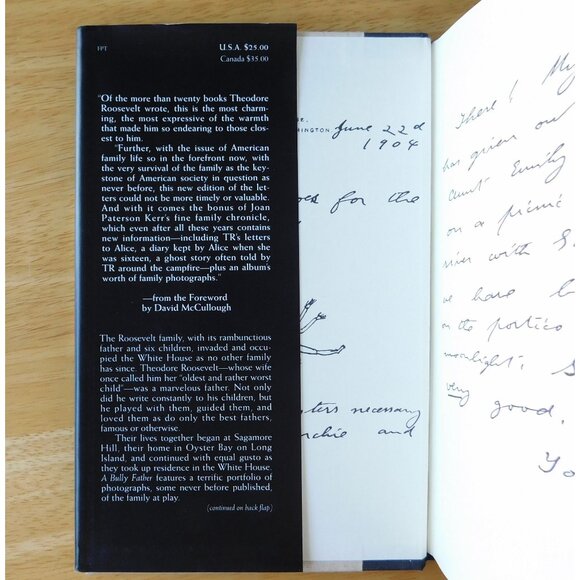 FPT
U.S.A. $25.00
Canada $35.00
"Of the more than twenty books Theodore
Roosevelt wrote, this is the most charm-
ing, the most expressive of the warmth
that made him so endearing to those clos-
est to him.
"Further, with the issue of American
family life so in the forefront now, with
the very survival of the family as the key-
stone of American society in question as
never before, this new edition of the let-
ters could not be more timely or valuable.
And with it comes the bonus of Joan
Paterson Kerr's fine family chronicle,
which even after all these years contains
new information—including TR's letters
to Alice, a diary kept by Alice when she
was sixteen, a ghost story often told by
TR around the campfire—plus an album's
worth of family photographs."
—from the Foreword
by David McCullough
The Roosevelt family, with its rambunctious
father and six children, invaded and occu-
pied the White House as no other family
has since. Theodore Roosevelt—whose wife
once called him her "oldest and rather worst
child"—was a marvelous father. Not only
did he write constantly to his children, but
he played with them, guided them, and
loved them as do only the best fathers,
famous or otherwise.
Their lives together began at Sagamore
Hill, their home in Oyster Bay on Long
Island, and continued with equal gusto as
they took up residence in the White House.
A Bully Father features a terrific portfolio of
photographs, some never before published,
of the family at play.
(continued on back flap)
June 22d
1904
for the
necessary
and
There! My
has given
aunt Emily
on a picnic
with
have
the portico
moonlight.
very good.